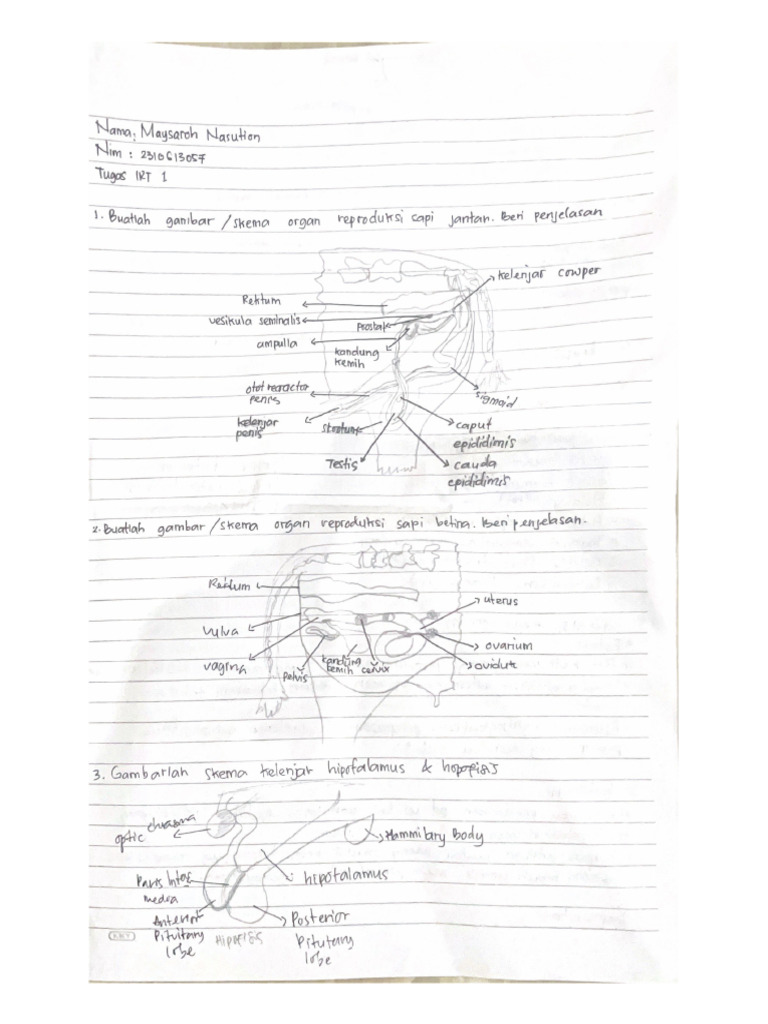 Nama: Maysaroh Nasution
Nim : 2310613057
Tugas IRT 1
1. Buatlah gambar /skema organ reproduksi sapi jantan. Beri penjelasan
kelenjar cowper
Rektum
vesikula seminalis
prostat
ampulla
kandung
kemih
otot reractor
penis
sigmoid
kelenjar
penis
skrotum
caput
epididimis
Testis
cauda
epididimis
2. Buatlah gambar /skema organ reproduksi sapi betina. Beri penjelasan.
Rektum
uterus
vulva
ovarium
vagina
pelvis
kandung
kemih
cervix
oviduk
3. Gambarlah skema kelenjar hipotalamus & hopofisis
chiasma
optic
Mammilary Body
hipotalamus
Pars Inter
media
Anterior
Pituitary
lobe
Hipofisis
Posterior
Pitutary
lobe